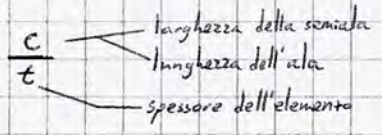 c
t
larghezza della semiala
lunghezza dell'ala
spessore dell'elemento